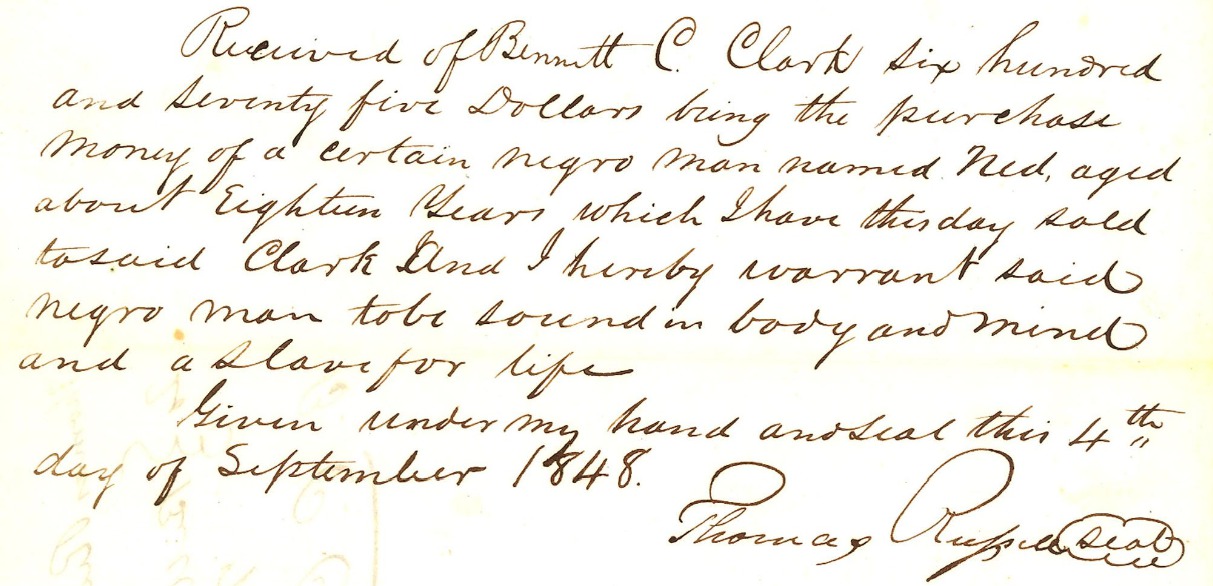 Received of Bennett C. Clark six hundred
and seventy five Dollars being the purchase
money of a certain negro man named Ned, aged
about Eighteen Years which I have this day sold
to said Clark And I hereby warrant said
negro man to be sound in body and mind
and a slave for life
Given under my hand and seal this 4th
day of September 1848.
Thomas Russell seal